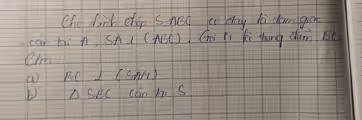 Cho hình chóp S.ABC có đáy là tam giác
cân tại A, SA ⊥ (ABC). Gọi M là trung điểm BC
C/m
a) BC ⊥ (SAM)
b) Δ SBC cân tại S